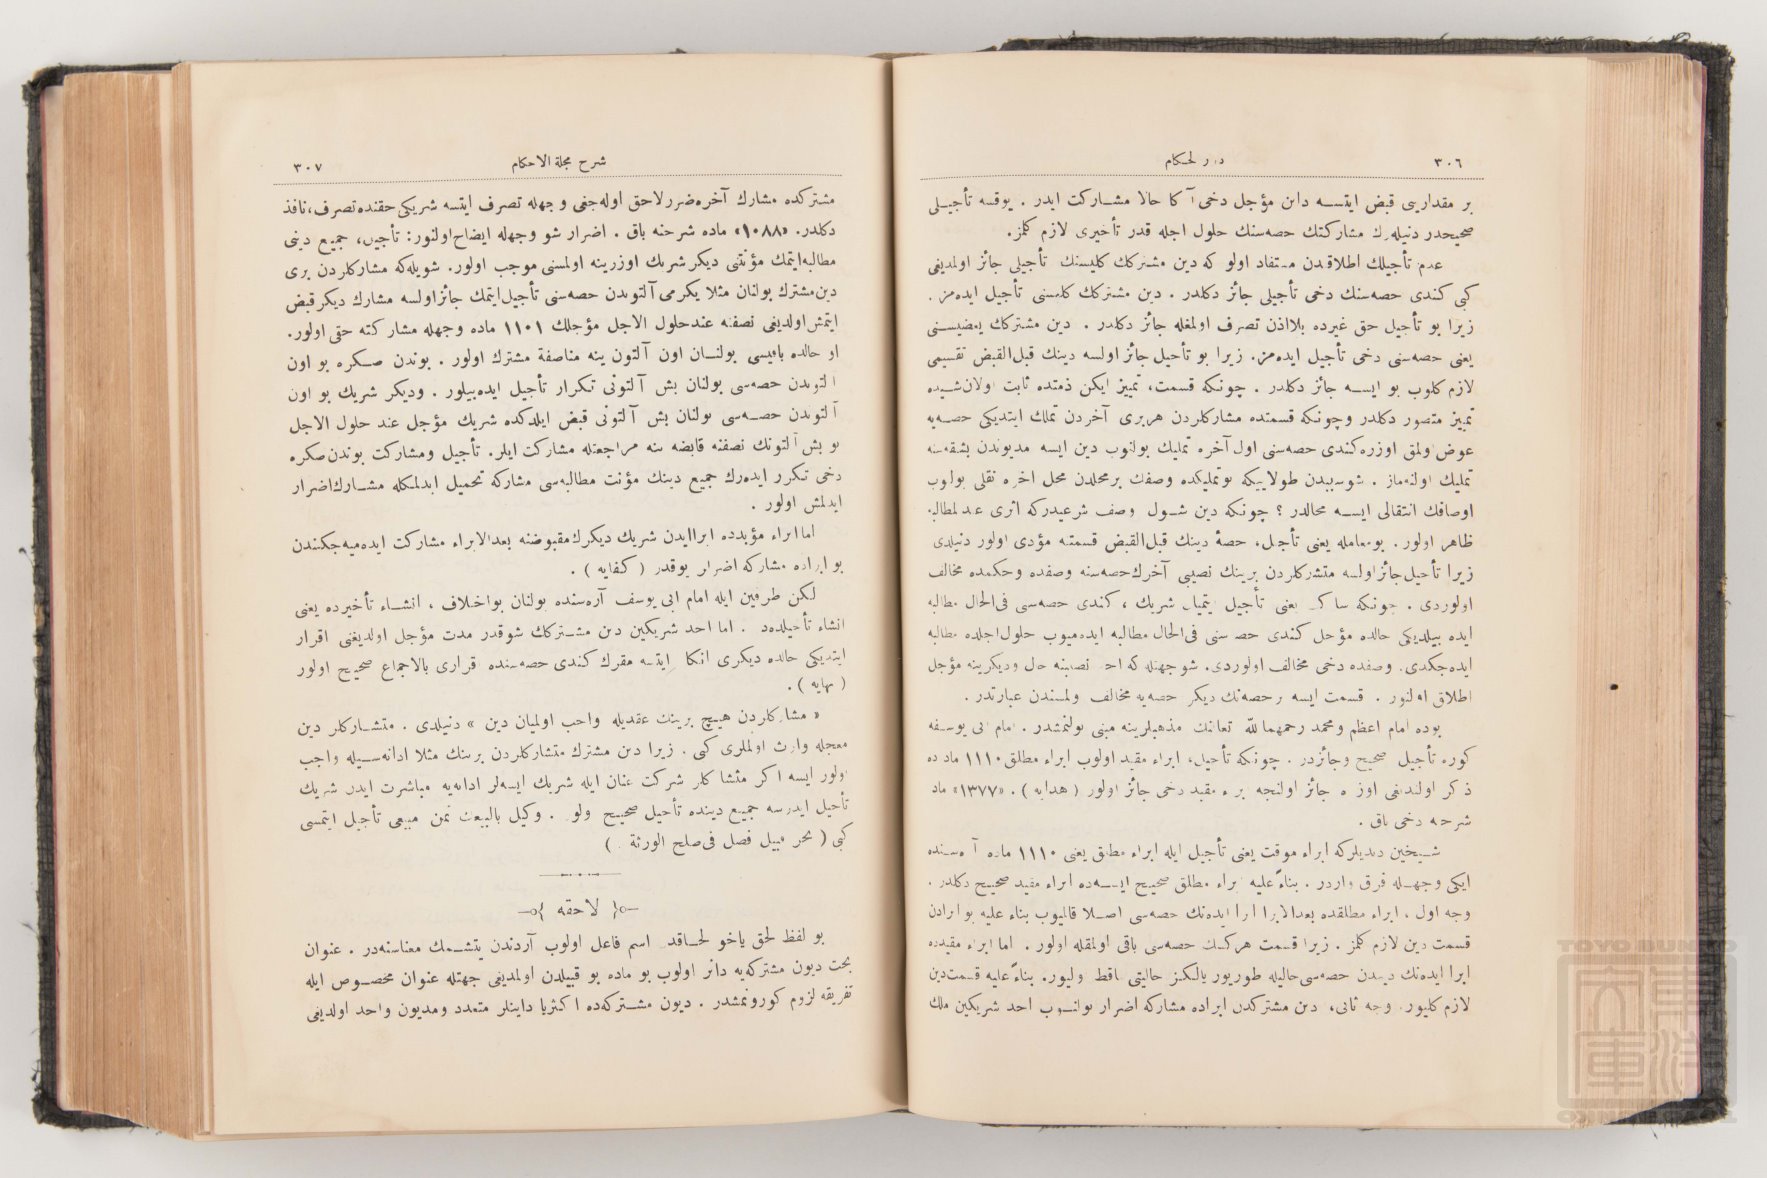 ٣٠٦
درر الحكام
بر مقدارينى قبض ايتسه داين مؤجل دخى آكا حالا مشاركت ايدر . يوقسه تأجيلى
صحيحدر دنيلەرك مشاركتك حصه‌سنك حلول اجله قدر تأخيرى لازم كلمز.
عدم تأجيلك اطلاقندن مستفاد اولور كه دين مشتركك كليسنك تأجيلى جائز اولمديغى
كبى كندى حصه‌سنك دخى تأجيلى جائز دكلدر . دين مشتركك كليسنى تأجيل ايده‌مز .
زيرا بو تأجيل حق غيرده بلااذن تصرف اولمغله جائز دكلدر . دين مشتركك بعضيسنى
يعنى حصه‌سنى دخى تأجيل ايده‌مز. زيرا بو تأجيل جائز اولسه دينك قبل‌القبض تقسيمى
لازم كلوب بو ايسه جائز دكلدر . چونكه قسمت، تمييز ايكن ذمتده ثابت اولان شيده
تمييز متصور دكلدر وچونكه قسمتده مشاركلردن هربرى آخردن تملك ايتديكى حصه‌يه
عوض اولمق اوزره كندى حصه‌سنى اول آخره تمليك بولنوب دين ايسه مديوندن بشقه‌سنه
تمليك اولنه‌ماز . شو سببدن طولاييكه بو تمليكده وصفك بر محلدن محل اخره نقلى بولنوب
اوصافك انتقالى ايسه محالدر ؟ چونكه دين شول وصف شرعيدركه اثرى عند المطالبه
ظاهر اولور . بو معامله يعنى تأجيل، حصهٔ دينك قبل‌القبض قسمتنه مؤدى اولور دنيلدى
زيرا تأجيل جائز اولسه متشاركلردن برينك نصيبى آخرك حصه‌سنه وصفده وحكمده مخالف
اولوردى . چونكه ساكت يعنى تأجيل ايتميان شريك ، كندى حصه‌سنى فى‌الحال مطالبه
ايده بيلديكى حالده مؤجل كندى حصه‌سنى فى‌الحال مطالبه ايده‌ميوب حلول اجلده مطالبه
ايده‌جكدى. وصفده دخى مخالف اولوردى. شو جهتله كه احد نصيبنه حال وديكرينه مؤجل
اطلاق اولنور . قسمت ايسه بر حصه‌نك ديكر حصه‌يه مخالف اولمسندن عبارتدر .
بوده امام اعظم ومحمد رحمهما لله تعالىنك مذهبلرينه مبنى بولنمشدر . امام ابى يوسفه
كوره تأجيل صحيح وجائزدر . چونكه تأجيل، ابراء مقيد اولوب ابراء مطلق ١١١٠ ماده ده
ذكر اولنديغى اوزره جائز اولنجه ابراء مقيد دخى جائز اولور ( هدايه ) . «١٣٧٧» ماده
شرحنه دخى باق .
شيخين ديديلركه ابراء موقت يعنى تأجيل ايله ابراء مطلق يعنى ١١١٠ ماده آره‌سنده
ايكى وجهله فرق واردر . بناءً عليه ابراء مطلق صحيح ايسه‌ده ابراء مقيد صحيح دكلدر .
وجه اول ، ابراء مطلقده بعدالابرا ابرا ايده‌نك حصه‌سى اصلا قالميوب بناء عليه بو ابرادن
قسمت دين لازم كلمز . زيرا قسمت هركسك حصه‌سى باقى اولمقله اولور . اما ابراء مقيدده
ابرا ايده‌نك دينده حصه‌سى حاليله طوريور يالكز حاليتى ساقط اوليور. بناءً عليه قسمت دين
لازم كليور. وجه ثانى، دين مشتركدن ابراده مشاركه اضرار بولنيوب احد شريكين ملك
شرح مجلة الاحكام
٣٠٧
مشتركده مشارك آخره ضرر لاحق اوله‌جغى وجهله تصرف ايتسه شريكى حقنده تصرف، نافذ
دكلدر. «١٠٨٨» ماده شرحنه باق . اضرار شو وجهله ايضاح اولنور: تأجيل، جميع دينى
مطالبه ايتمك مؤنتنى ديكر شريك اوزرينه اولمسنى موجب اولور. شويله‌كه مشاركلردن برى
دين مشترك بولنان مثلا يكرمى آلتوندن حصه‌سنى تأجيل ايتمك جائز اولسه مشارك ديكر قبض
ايتمش اولديغى نصفنه عند حلول الاجل مؤجلك ١١٠١ ماده وجهله مشاركته حقى اولور.
او حالده باقيسى بولنان اون آلتون ينه مناصفة مشترك اولور . بوندن صكره بو اون
آلتوندن حصه‌سى بولنان بش آلتونى تكرار تأجيل ايده‌بيلور . وديكر شريك بو اون
آلتوندن حصه‌سى بولنان بش آلتونى قبض ايلدكده شريك مؤجل عند حلول الاجل
بو بش آلتونك نصفنه قابضه ينه مراجعتله مشاركت ايلر. تأجيل ومشاركت بوندن صكره
دخى تكرر ايده‌رك جميع دينك مؤنت مطالبه‌سى مشاركه تحميل ايدلمكله مشارك اضرار
ايدلمش اولور .
اما ابراء مؤبدده ابرا ايدن شريك ديكرك مقبوضنه بعدالابراء مشاركت ايده‌ميه‌جكندن
بو ابراده مشاركه اضرار يوقدر ( كفايه ) .
لكن طرفين ايله امام ابى يوسف آره‌سنده بولنان بو اختلاف ، انشاء تأخيرده يعنى
انشاء تأجيلده‌در . اما احد شريكين دين مشتركك شو قدر مدت مؤجل اولديغنى اقرار
ايتديكى حالده ديكرى انكار ايتسه مقرك كندى حصه‌سنده اقرارى بالاجماع صحيح اولور
( نهايه ) .
« مشاركلردن هيچ برينك عقديله واجب اولميان دين » دنيلدى . متشاركلر دين
معجله وارث اولملرى كبى . زيرا دين مشترك متشاركلردن برينك مثلا ادانه‌سيله واجب
اولور ايسه اكر متشاركلر شركت عنان ايله شريك ايسه‌لر ادانه‌يه مباشرت ايدن شريك
تأجيل ايدرسه جميع دينده تأجيل صحيح اولور . وكيل بالبيعك ثمن مبيعى تأجيل ايتمسى
كبى ( بحر قبيل فصل فى صلح الورثة . )
لاحقه
بو لفظ لحق ياخو لحاقدن اسم فاعل اولوب آردندن يتشمك معناسنه‌در . عنوان
بحث ديون مشتركه‌يه دائر اولوب بو ماده بو قبيلدن اولمديغى جهتله عنوان مخصوص ايله
تفريقه لزوم كورونمشدر . ديون مشتركه‌ده اكثريا داينلر متعدد ومديون واحد اولديغى
TOYO BUNKO